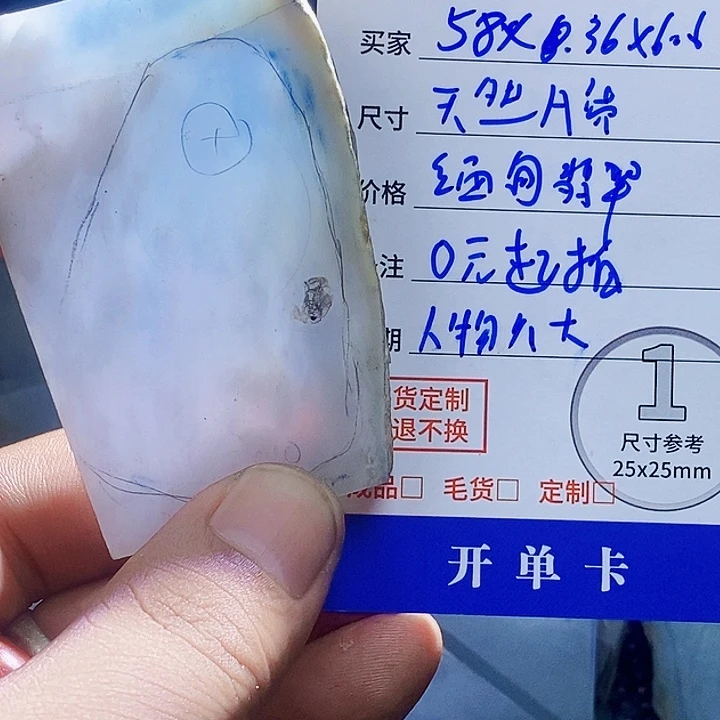 买家 58x8.36x6.6
尺寸 天然A货
价格 缅甸翡翠
注 0元起拍
期 人物久大
货定制
退不换
1
尺寸参考
25x25mm
成品□ 毛货□ 定制□
开单卡